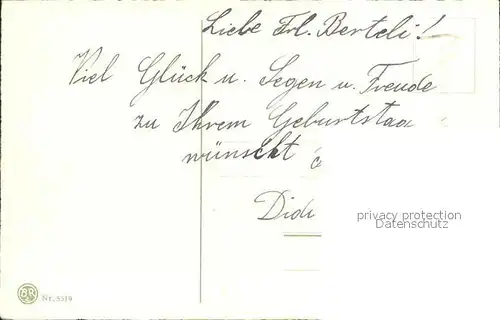 Liebe Frl. Berteli!
Viel Glück u. Segen u. Freude
zu Ihrem Geburtstag
wünscht
Didi
privacy protection
Datenschutz
Nr. 5519